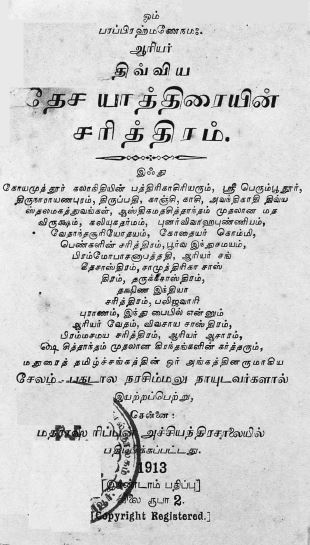 ஓம்
பரப்பிரஹ்மணேநமஃ.
ஆரியர்
திவ்விய
தேச யாத்திரையின்
சரித்திரம்.
இஃது
கோயமுத்தூர் கலாநிதியின் பத்திரிகாசிரியரும், ஸ்ரீ பெரும்பூதூர்,
திருநாராயணபுரம், திருப்பதி, காஞ்சி, காசி, அவந்திகாதி திவ்ய
ஸ்தலமகத்துவங்கள், ஆஸ்திகமதசித்தாந்தம் முதலான மத
விருக்ஷம், கலியுகதர்மம், புனர்விவாஹபுண்ணியம்,
வேதாந்தசூரியோதயம், கோதையர் கொம்மி,
பெண்களின் சரித்திரம், பூர்வ இந்துசமயம்,
பிரம்மோபாசனாபத்ததி, ஆரியர் சங்
கீதசாஸ்திரம், சாமுத்திரிகா சாஸ்
திரம், தருக்கசாஸ்திரம்,
தக்ஷிண இந்தியா
சரித்திரம், பலிஜவாரி
புராணம், இந்து பைபில் என்னும்
ஆரியர் வேதம், விவசாய சாஸ்திரம்,
பிரம்மசமய சரித்திரம், ஆரியர் ஆசாரம்,
சித்தாந்தம் முதலான கிரந்தங்களின் கர்த்தரும்,
மதுரைத் தமிழ்ச்சங்கத்தின் ஓர் அங்கத்தினருமாகிய
சேலம் பகடால நரசிம்மலு நாயுடவர்களால்
இயற்றப்பெற்று,
சென்னை:
மதராஸ் ரிப்பன் அச்சியந்திரசாலையில்
பதிப்பிக்கப்பட்டது.
1913
[இரண்டாம் பதிப்பு]
விலை ரூபா 2.
[Copyright Registered.]